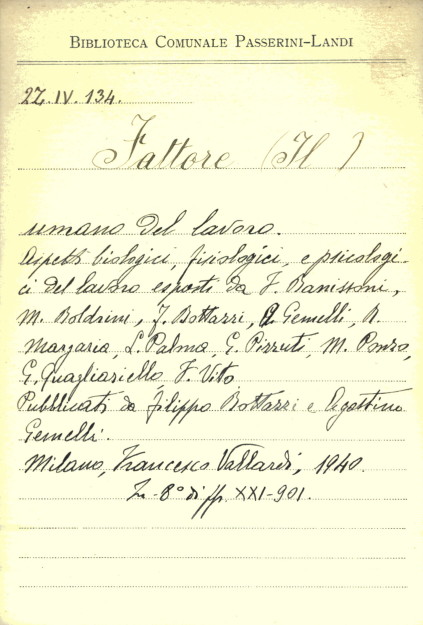 BIBLIOTECA COMUNALE PASSERINI-LANDI
2Z.IV.134.
Fattore (Il)
umano del lavoro.
Aspetti biologici, fisiologici, e psicologi-
ci del lavoro esposti da F. Banissoni,
M. Boldrini, F. Bottazzi, A. Gemelli, R.
Margaria, L. Palma, G. Pizzuti, M. Ponzo,
G. Quagliariello, F. Vito
Pubblicati da Filippo Bottazzi e Agostino
Gemelli.
Milano, Francesco Vallardi, 1940.
In-8° di pp. XXI-901.